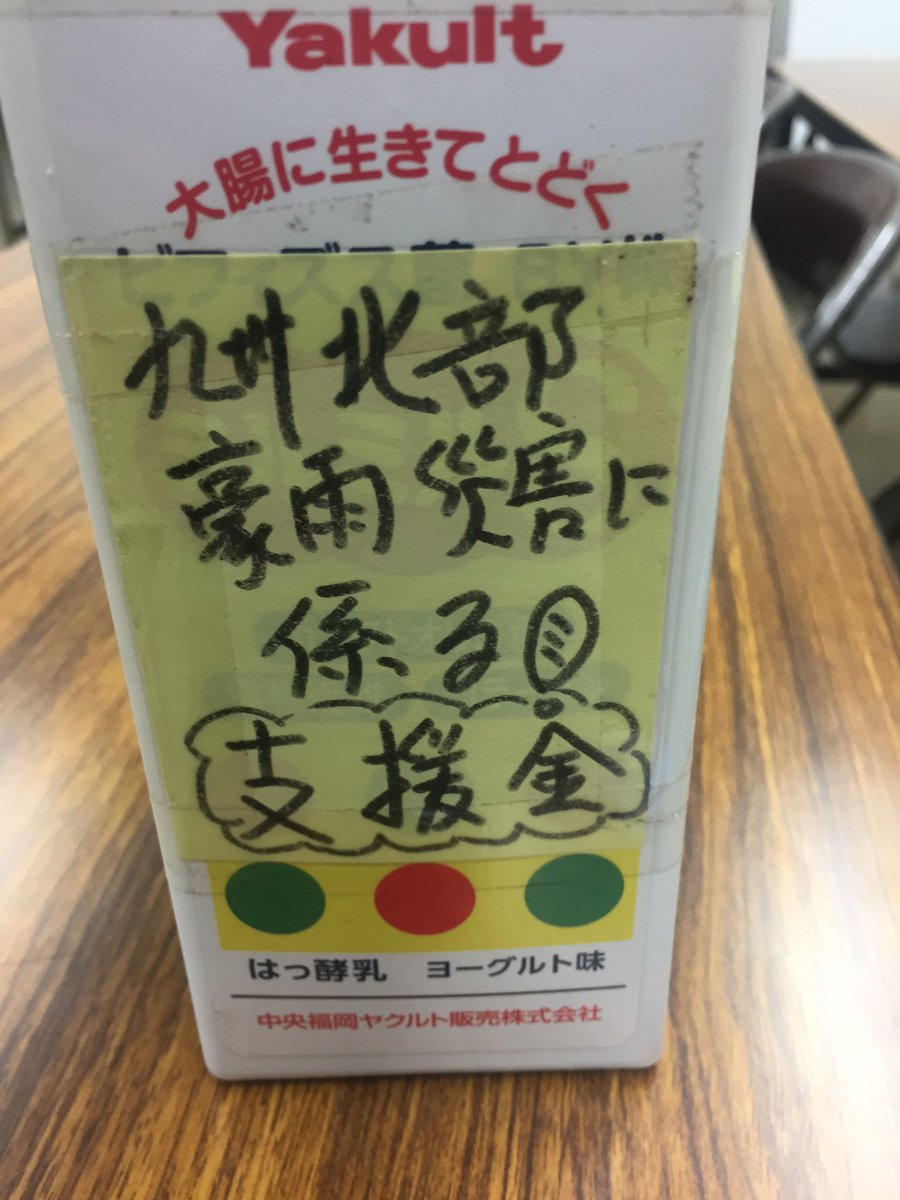 Yakult
大腸に生きてとどく
九州北部
豪雨災害に
係る
支援金
はっ酵乳 ヨーグルト味
中央福岡ヤクルト販売株式会社